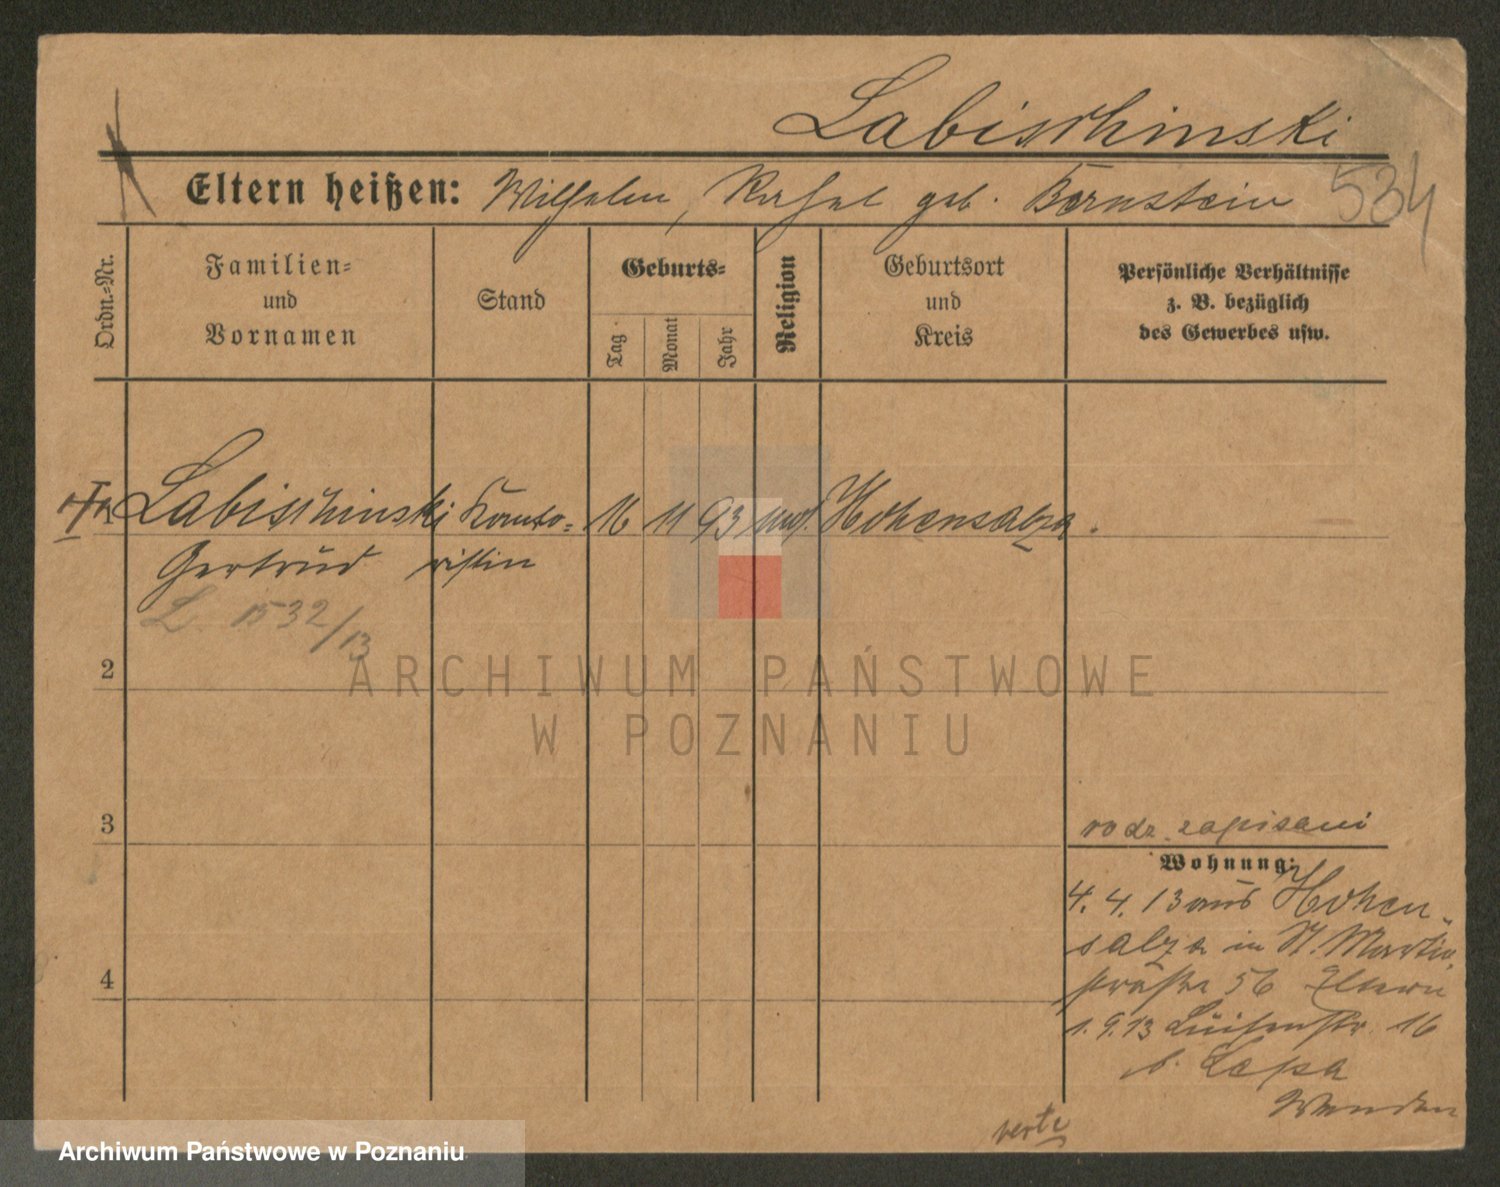 Labischinski
Eltern heißen: Wilhelm, Rahel geb. Bernstein
534
Ordn.-Nr.
Familien-
und
Vornamen
Stand
Geburts-
Tag
Monat
Jahr
Religion
Geburtsort
und
Kreis
Persönliche Verhältnisse
z. B. bezüglich
des Gewerbes usw.
1 Labischinski Konto- 16 11 93 mos. Hohensalza.
Gertrud ristin
L. 1532/13
2
ARCHIWUM PAŃSTWOWE
W POZNANIU
3
rodz. zapisani
Wohnung:
4. 4. 13 aus Hohen-
salza in St. Martin
straße 56 Eltern
4
1. 9. 13 Luisenstr. 16
b.
Wenden
verte
Archiwum Państwowe w Poznaniu